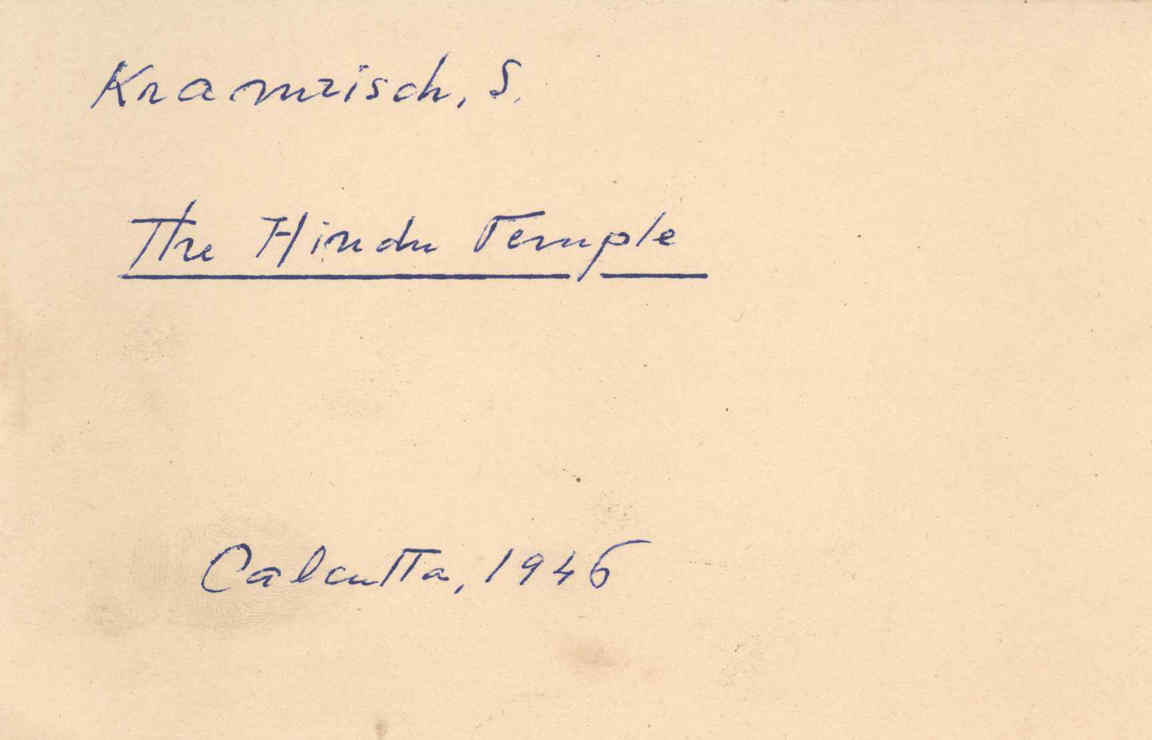 Kramrisch, S.
The Hindu Temple
Calcutta, 1946